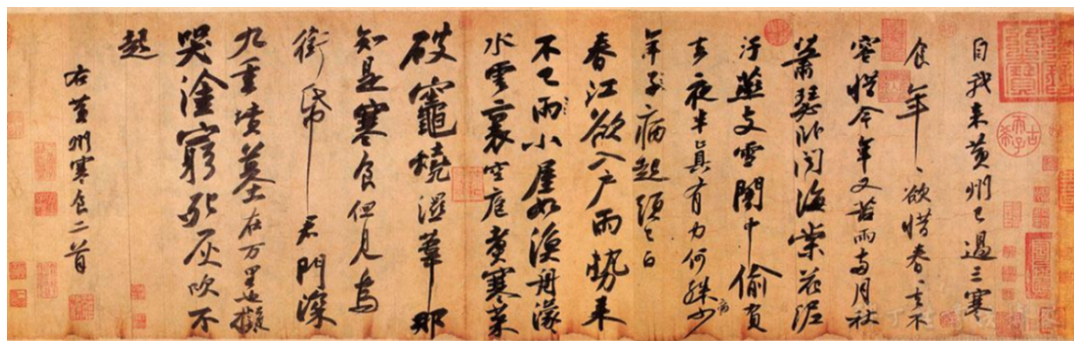 自我来黄州已過三寒
食年〻欲惜春〻去不
容惜今年又苦雨兩月秋
蕭瑟卧聞海棠花泥
汙燕支雪闇中偷負
去夜半真有力何殊少病
年子病起頭已白
春江欲入户雨勢来
不已雨小屋如漁舟濛〻
水雲裏空庖煮寒菜
破竈燒濕葦那
知是寒食但見烏
銜帋君門深
九重墳墓在万里也擬
哭塗窮死灰吹不
起
右黄州寒食二首
古希天子